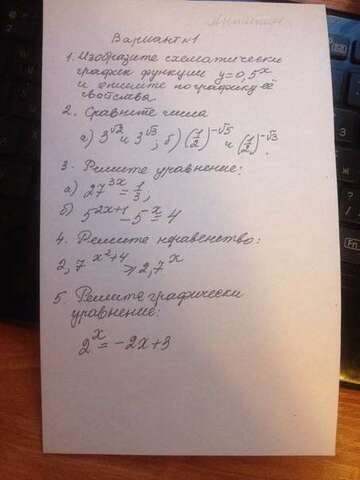 Вариант №1
1. Изобразите схематически
график функции y=0,5^x
и опишите по графику её
свойства.
2. Сравните числа
а) 3^√2 и 3^√3; б) (1/2)^-√5 и (1/2)^-√3.
3. Решите уравнение:
а) 27^3x = 1/3;
б) 5^2x+1 - 5^x = 4
4. Решите неравенство:
2,7^x²+4 ⩾ 2,7^x
5. Решите графически
уравнение:
2^x = -2x+3